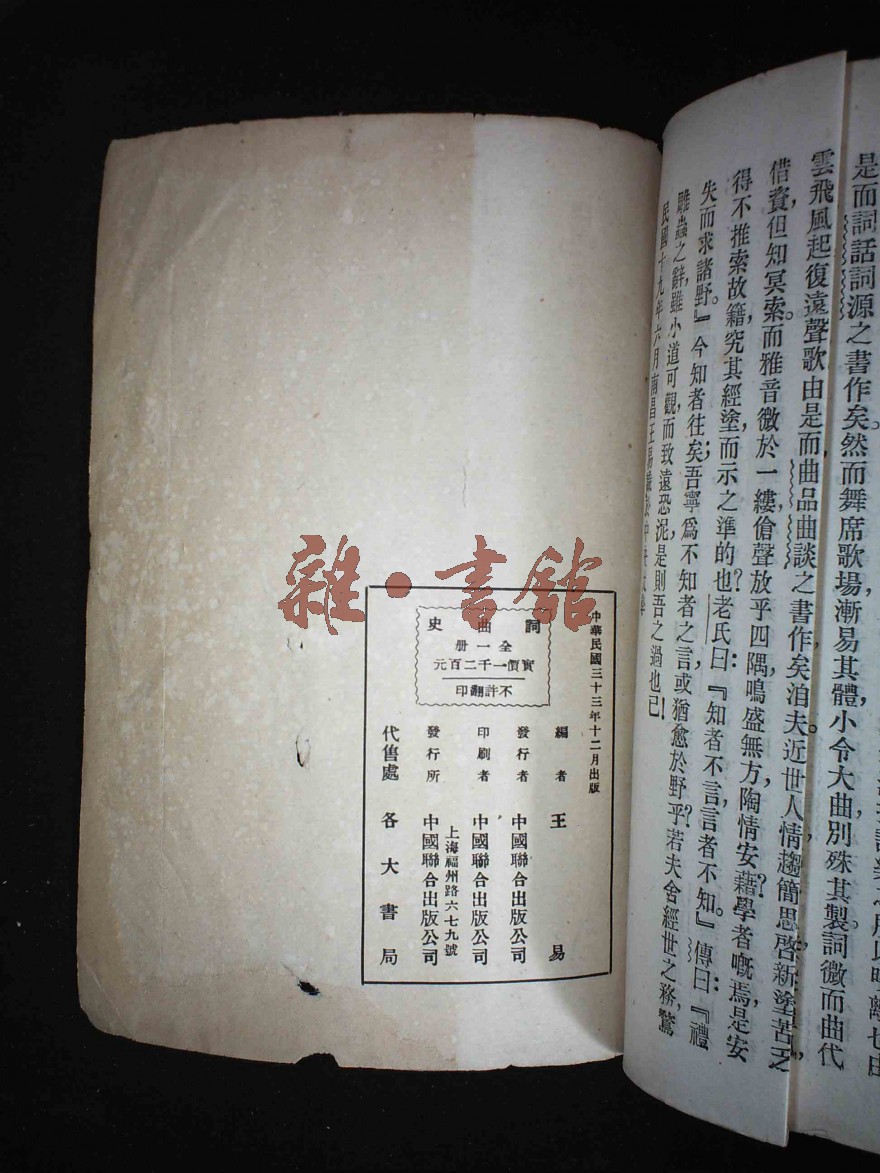 是而詞話詞源之書作矣。然而舞席歌場漸易其體，小令大曲別殊其製，詞微而曲代
雲飛風起，復遠聲歌。由是而曲品曲談之書作矣。洎夫近世，人情趨簡，思啓新塗，苦乏
借資，但知冥索。而雅音微於一縷，傖聲放乎四隅，鳴盛無方，陶情安藉？學者嘅焉。是安
得不推索故籍，究其經塗，而示之準的也？老氏曰：『知者不言，言者不知。』傳曰：『禮
失而求諸野。』今知者往矣；吾寧爲不知者之言，或猶愈於野乎？若夫舍經世之務，騖
雕蟲之辭，雖小道可觀，而致遠恐泥，是則吾之過也已！
民國十九年六月南昌王易
中華民國三十三年十二月出版
詞曲史
全一册
實價一千二百元
不許翻印
編者 王易
發行者 中國聯合出版公司
印刷者 中國聯合出版公司
上海福州路六七九號
發行所 中國聯合出版公司
代售處 各大書局
雜·書館